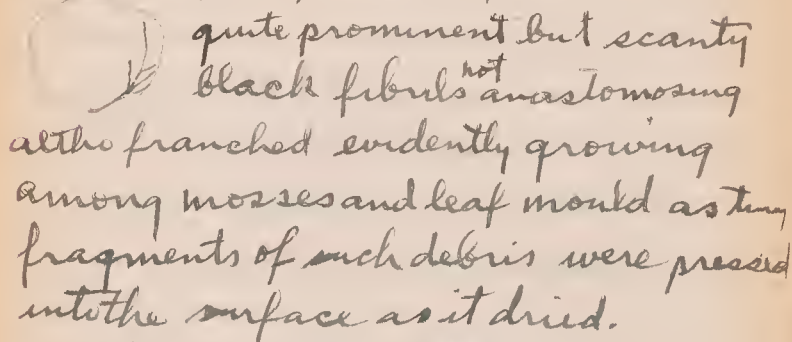 quite prominent but scanty
black fibrils not anastomosing
altho franched evidently growing
among mosses and leaf mould as tiny
fragments of such debris were pressed
into the surface as it dried.